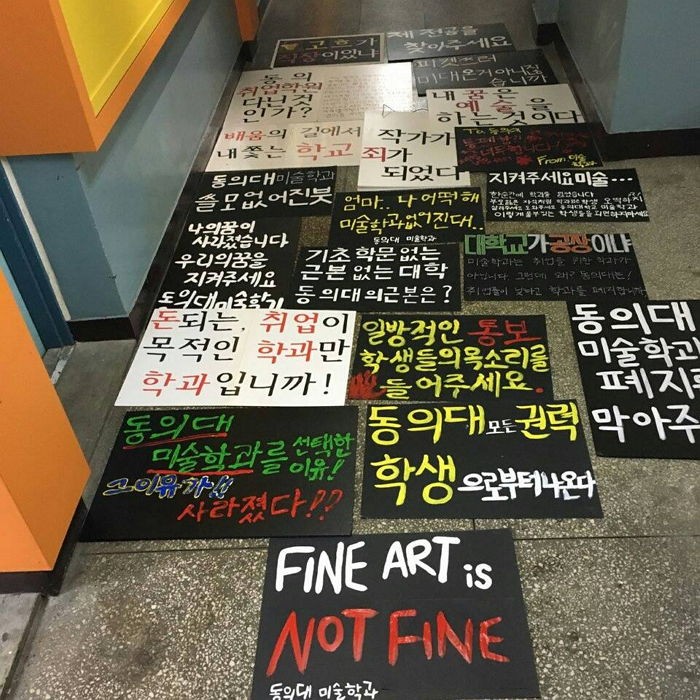 고흐가
직장이있냐
제 전공을
찾아주세요
피켓들러
미대온거 아니잖
습니까
동의
취업학원
다닌것
인가?
내 꿈은
예술을
하는것이다
배움의 길에서
내쫓는 학교
작가가
죄가
되었다
To. 동의대
From. 미술
학과
동의대미술학과
쓸모없어진붓
엄마.. 나 어떡해
미술학과없어진대..
동의대 미술학과
지켜주세요미술...
나의꿈이
사라졌습니다
우리의꿈을
지켜주세요
동의대미술학과
기초 학문 없는
근본 없는 대학
동의대의근본은?
대학교가 공장이냐
미술학과는 취업을 위한 학과가
아닙니다 그런데 왜? 동의대는!
취업률이 낮다고 학과를 폐지합니까
돈되는, 취업이
목적인 학과만
학과입니까!
일방적인 통보
학생들의목소리를
들어주세요.
동의대
미술학과
폐지를
막아주
동의대
미술학과를 선택한
이유!
그이유가!!
사라졌다!??
동의대 모든 권력
학생으로부터나온다
FINE ART is
NOT FINE
동의대 미술학과